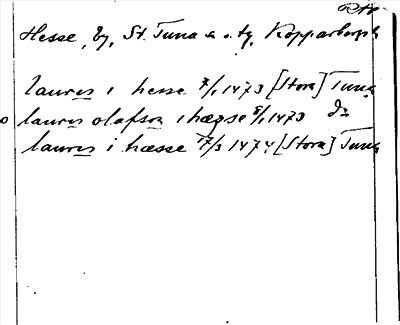 RA
Hesse, by, St. Tuna s. o. tg, Kopparbergs
laurens i hesse 7/1 1473 [Stora] Tuna
laurens olafson i hægse 8/1 1473 do
laurens i hæsse 17/3 1474 [Stora] Tuna